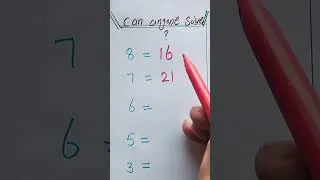 Can anyone Solve
?
8 = 16
7 = 21
6 =
5 =
3 =
7
6